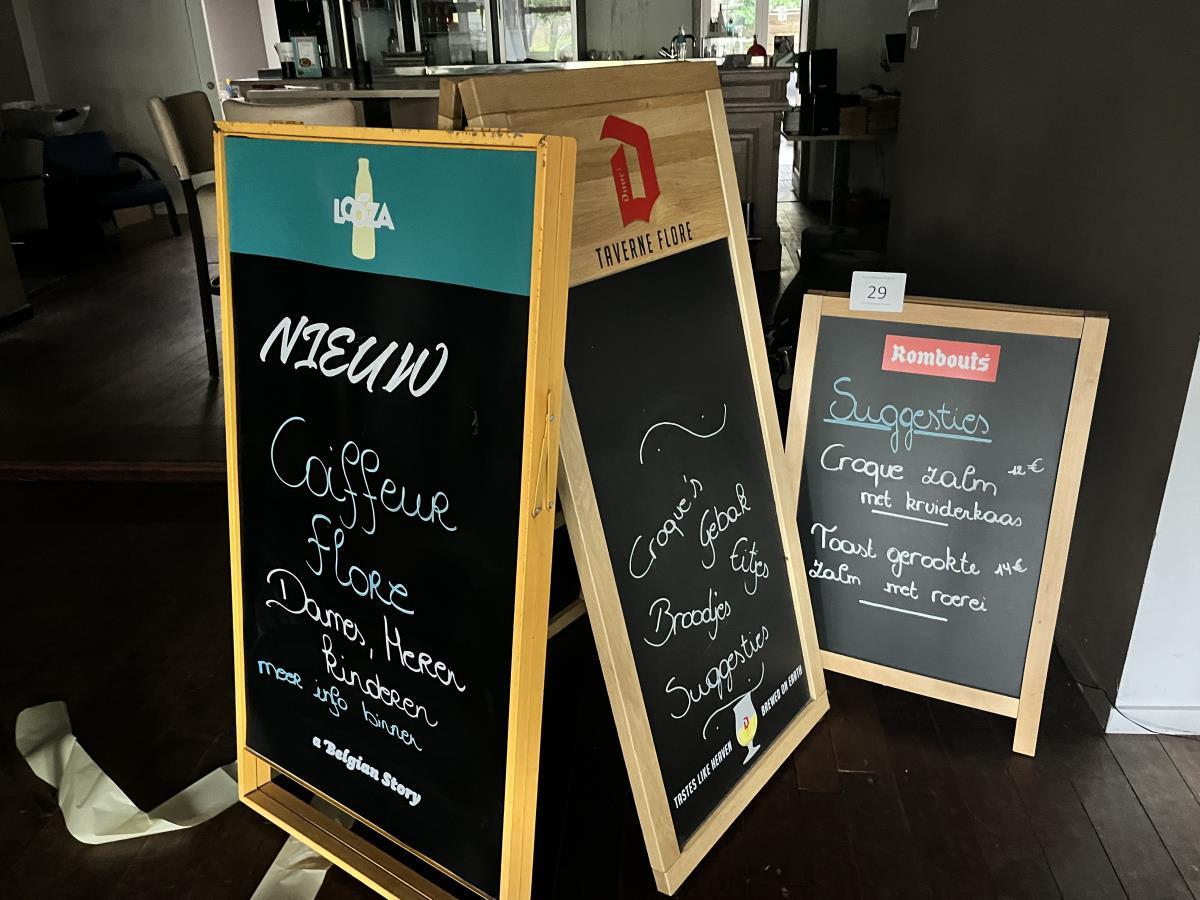 LOOZA
NIEUW
Coiffeur
Flore
Dames, Heren
Kinderen
meer info binnen
a Belgian Story
Duvel
TAVERNE FLORE
Croque's
Gebak
Eitjes
Broodjes
Suggesties
TASTES LIKE HEAVEN BREWED ON EARTH
29
Rombouts
Suggesties
Croque zalm 12€
met kruiderkaas
Toast gerookte 14€
zalm met roerei